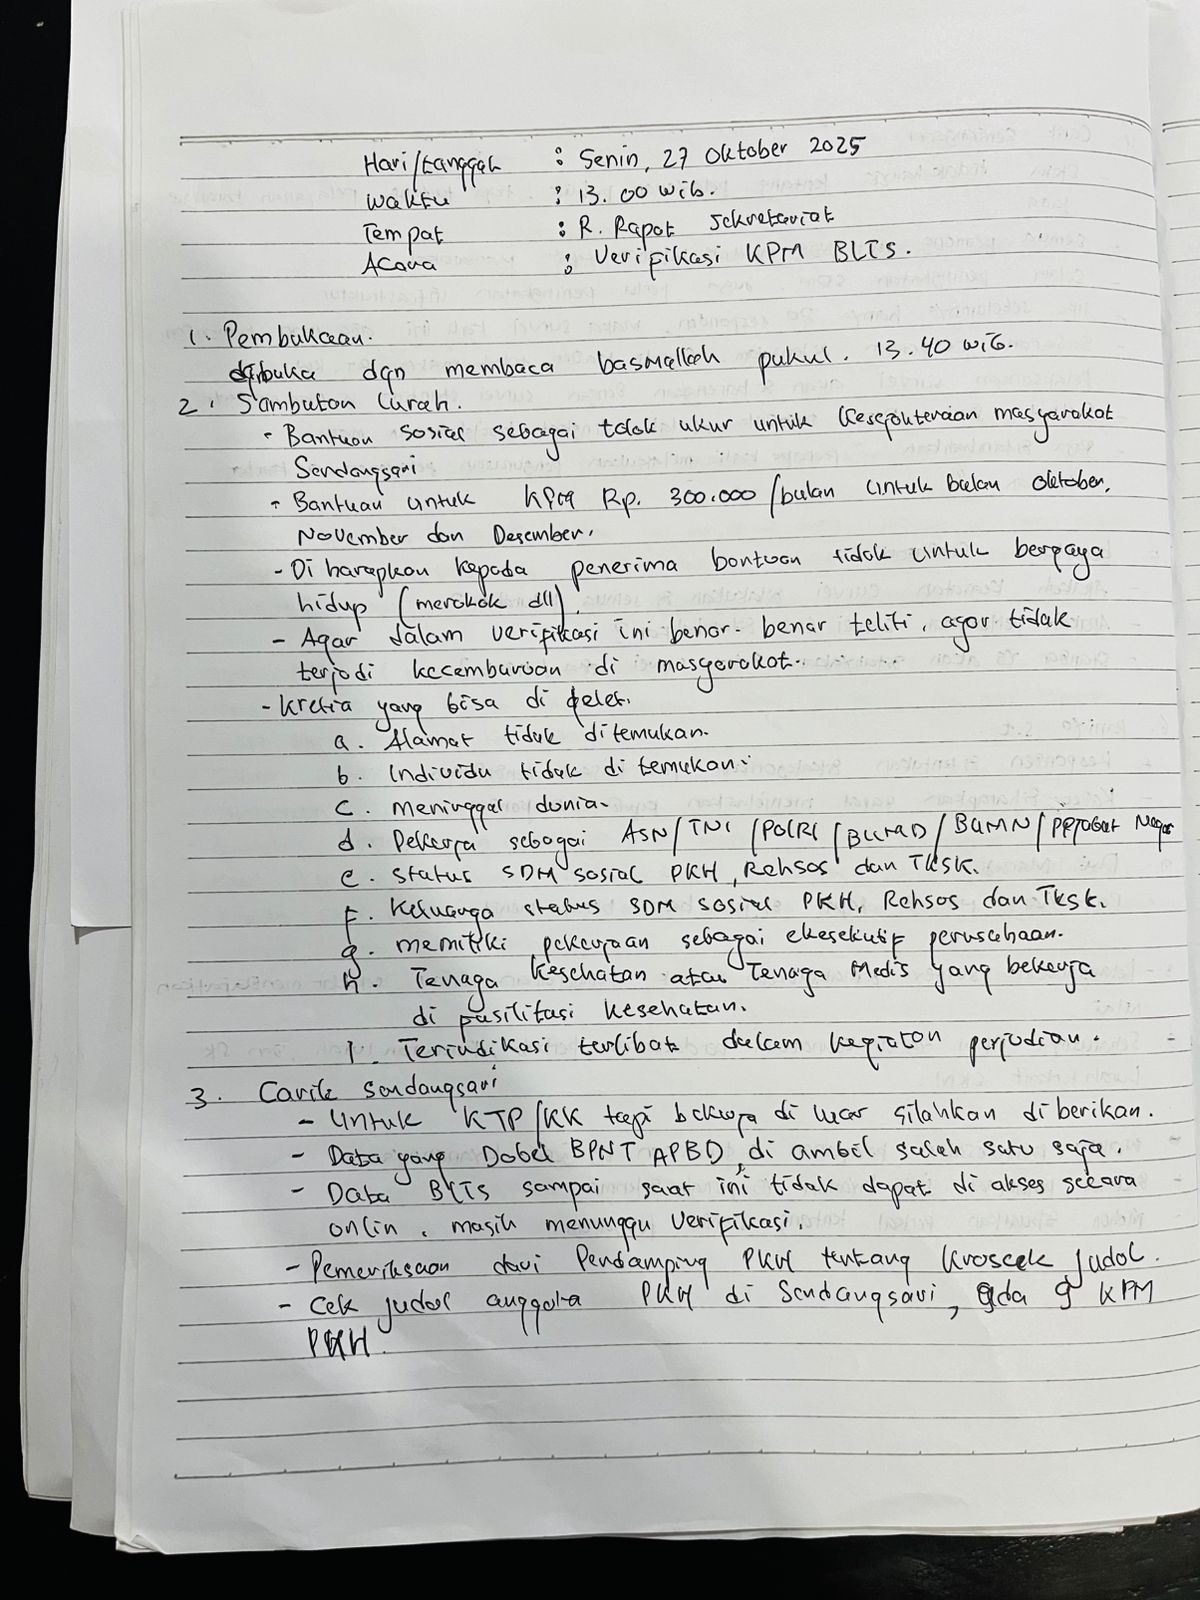 Hari/tanggal : Senin, 27 Oktober 2025
Waktu : 13.00 wib.
Tempat : R. Rapat Sekretariat
Acara : Verifikasi KPM BLTS.
1. Pembukaan.
dibuka dgn membaca basmallah pukul. 13.40 WIB.
2. Sambutan Lurah.
- Bantuan sosial sebagai tolok ukur untuk kesejahteraan masyarakat
Sendangsari
- Bantuan untuk KPM Rp. 300.000/bulan untuk bulan Oktober,
November dan Desember.
- Di harapkan kepada penerima bantuan tidak untuk bergaya
hidup (merokok dll).
- Agar dalam verifikasi ini benar-benar teliti, agar tidak
terjadi kecemburuan di masyarakat.
- Kretia yang bisa di delet.
a. Alamat tidak ditemukan.
b. Individu tidak di temukan.
c. meninggal dunia.
d. Pekerja sebagai ASN/TNI/POLRI/BUMD/BUMN/Pejabat Negar
e. status SDM sosial PKH, Rehsos dan TKSK.
f. Keluarga status SDM sosial PKH, Rehsos dan TKSK.
g. memiliki pekerjaan sebagai eksekutif perusahaan.
h. Tenaga Kesehatan atau Tenaga Medis yang bekerja
di pasilitasi kesehatan.
i. Terindikasi terlibat dalam kegiatan perjudian.
3. Carik Sendangsari
- Untuk KTP/KK tapi bekerja di luar silahkan diberikan.
- Data yang Dobel BPNT APBD, di ambil salah satu saja.
- Data BLTS sampai saat ini tidak dapat di akses secara
onlin, masih menunggu verifikasi.
- Pemeriksaan dari Pendamping PKH tentang kroscek Judol.
- Cek judol anggota PKH di Sendangsari, ada 9 KPM
PKH.